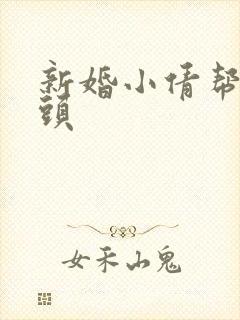 新婚小倩帮
頭
女禾山鬼